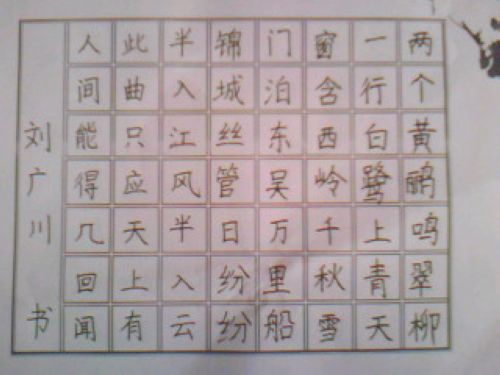 两个黄鹂鸣翠柳
一行白鹭上青天
窗含西岭千秋雪
门泊东吴万里船
锦城丝管日纷纷
半入江风半入云
此曲只应天上有
人间能得几回闻
刘广川 书